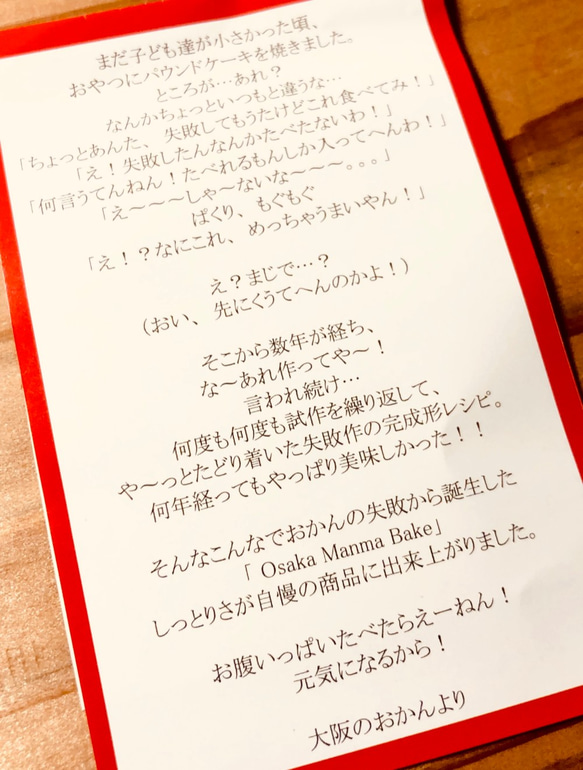 まだ子ども達が小さかった頃、
おやつにパウンドケーキを焼きました。
ところが…あれ？
なんかちょっといつもと違うな…
「ちょっとあんた、失敗してもうたけどこれ食べてみ！」
「え！失敗したんなんかたべたないわ！」
「何言うてんねん！たべれるもんしか入ってへんわ！」
「え～～～しゃ～ないな～～～。。。」
ぱくり、もぐもぐ
「え！？なにこれ、めっちゃうまいやん！」
え？まじで…？
（おい、先にくうてへんのかよ！）
そこから数年が経ち、
な～あれ作ってや～！
言われ続け…
何度も何度も試作を繰り返して、
や～っとたどり着いた失敗作の完成形レシピ。
何年経ってもやっぱり美味しかった！！
そんなこんなでおかんの失敗から誕生した
「 Osaka Manma Bake」
しっとりさが自慢の商品に出来上がりました。
お腹いっぱいたべたらえーねん！
元気になるから！
大阪のおかんより